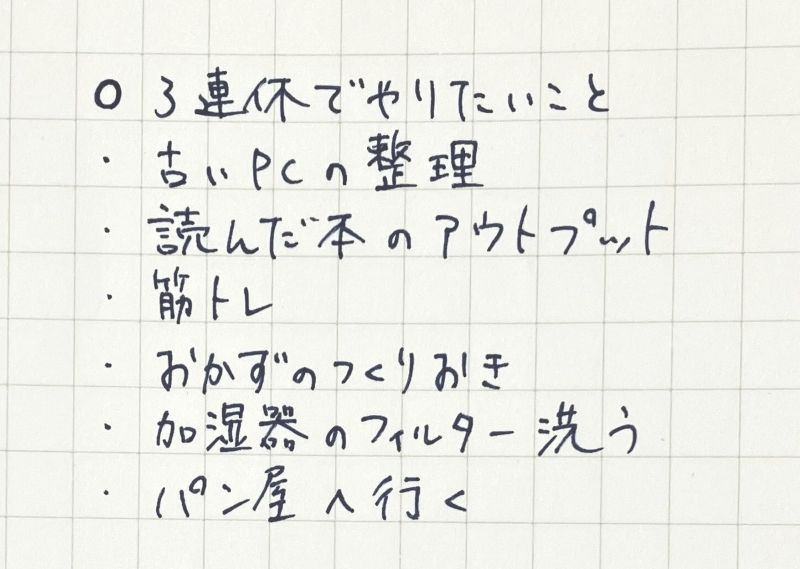 ○ 3連休でやりたいこと
・古いPCの整理
・読んだ本のアウトプット
・筋トレ
・おかずのつくりおき
・加湿器のフィルター洗う
・パン屋へ行く